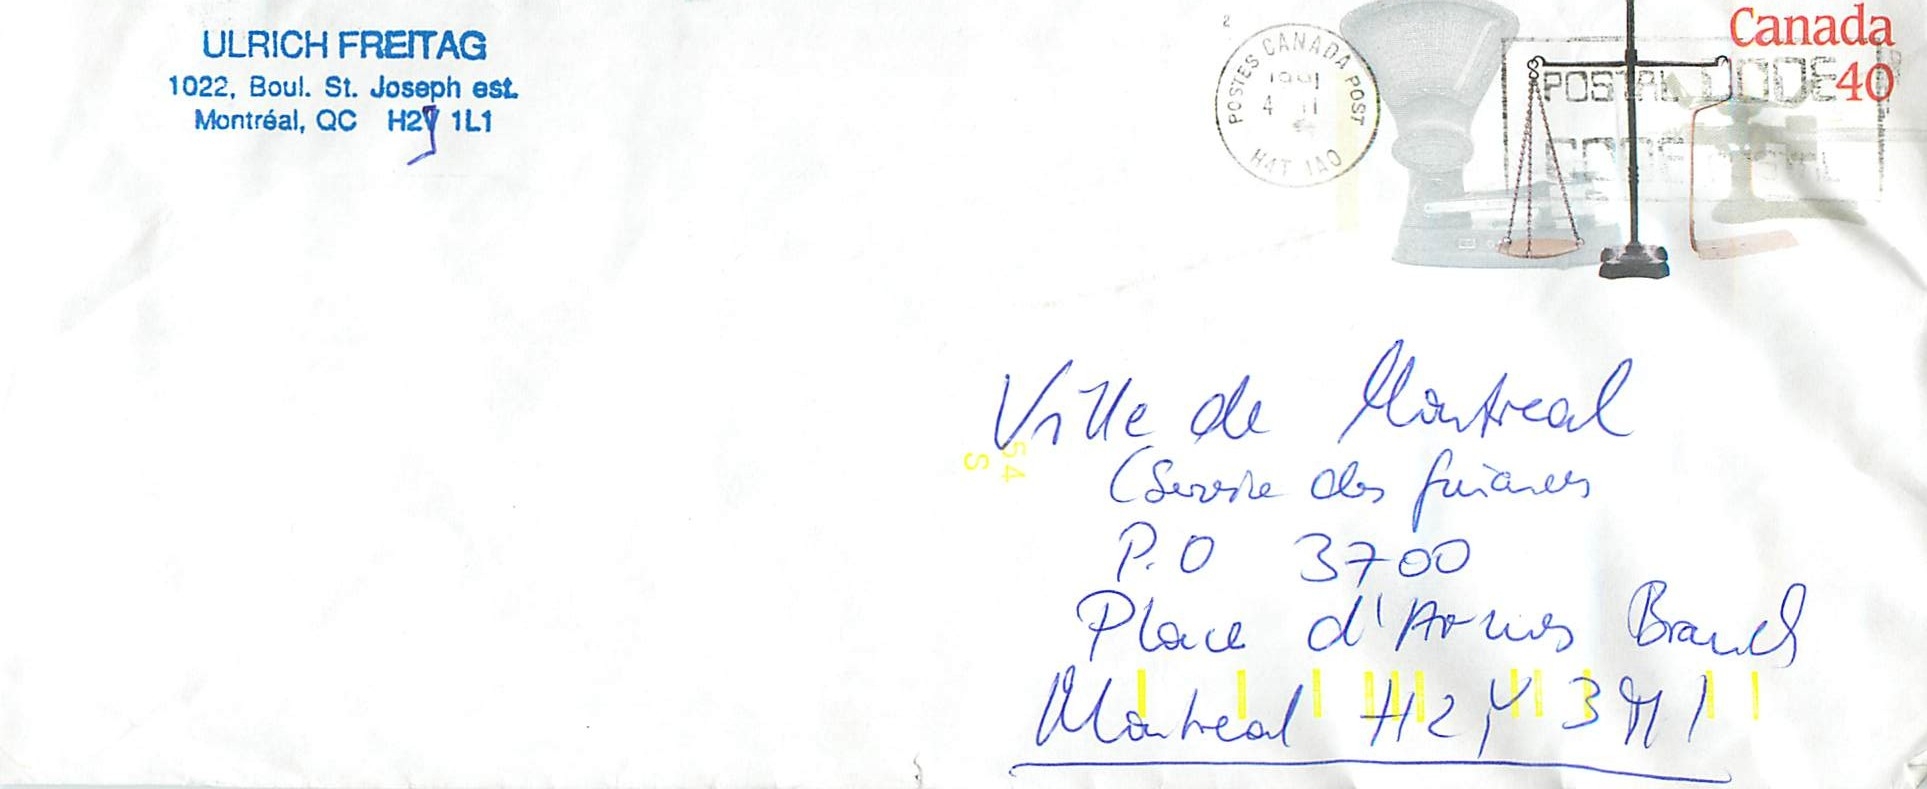 ULRICH FREITAG
1022, Boul. St. Joseph est.
Montréal, QC H2J 1L1
2
POSTES CANADA POST
1991
4 II
H4T 1A0
Canada
40
POSTAL CODE
CODE POSTAL
54
S
Ville de Montreal
(Service des finances
P.O 3700
Place d'Armes Branch
Montreal H2Y 3M1